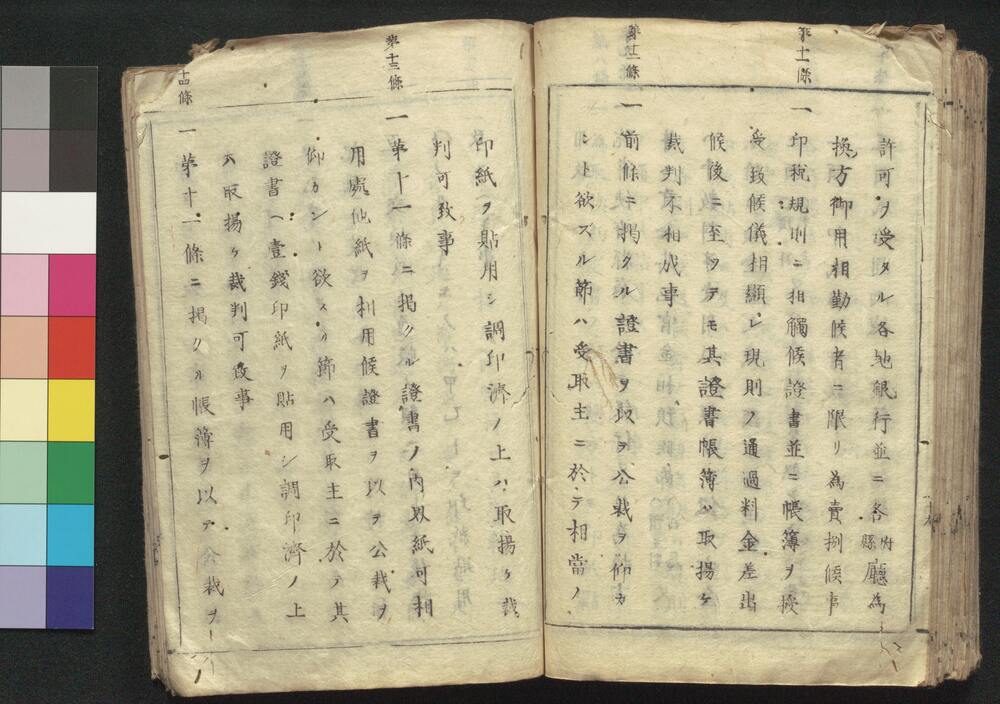 許可ヲ受タル各地銀行並ニ各府縣廳為
換方御用相勤候者ニ限リ為賣捌候事
第十一條
一 印税規則ニ相觸候證書並ニ帳簿ヲ授
受致候儀相顯レ現則ノ通過料金差出
候後ニ至ツテモ其證書帳簿ハ取揚ケ
裁判不相成事
第十二條
一 前條ニ掲クル證書ヲ以ヲ公裁ヲ仰カ
ント欲スル節ハ受取主ニ於テ相當ノ
印紙ヲ貼用シ調印濟ノ上ハ取揚ケ裁
判可致事
第十三條
一 第十一條ニ掲クル證書ノ内界紙可相
用處他紙ヲ相用候證書ヲ以ヲ公裁ヲ
仰カント欲スル節ハ受取主ニ於テ其
證書ヘ壹錢印紙ヲ貼用シ調印濟ノ上
ハ取揚ケ裁判可致事
十四條
一 第十一條ニ掲クル帳簿ヲ以テ公裁ヲ